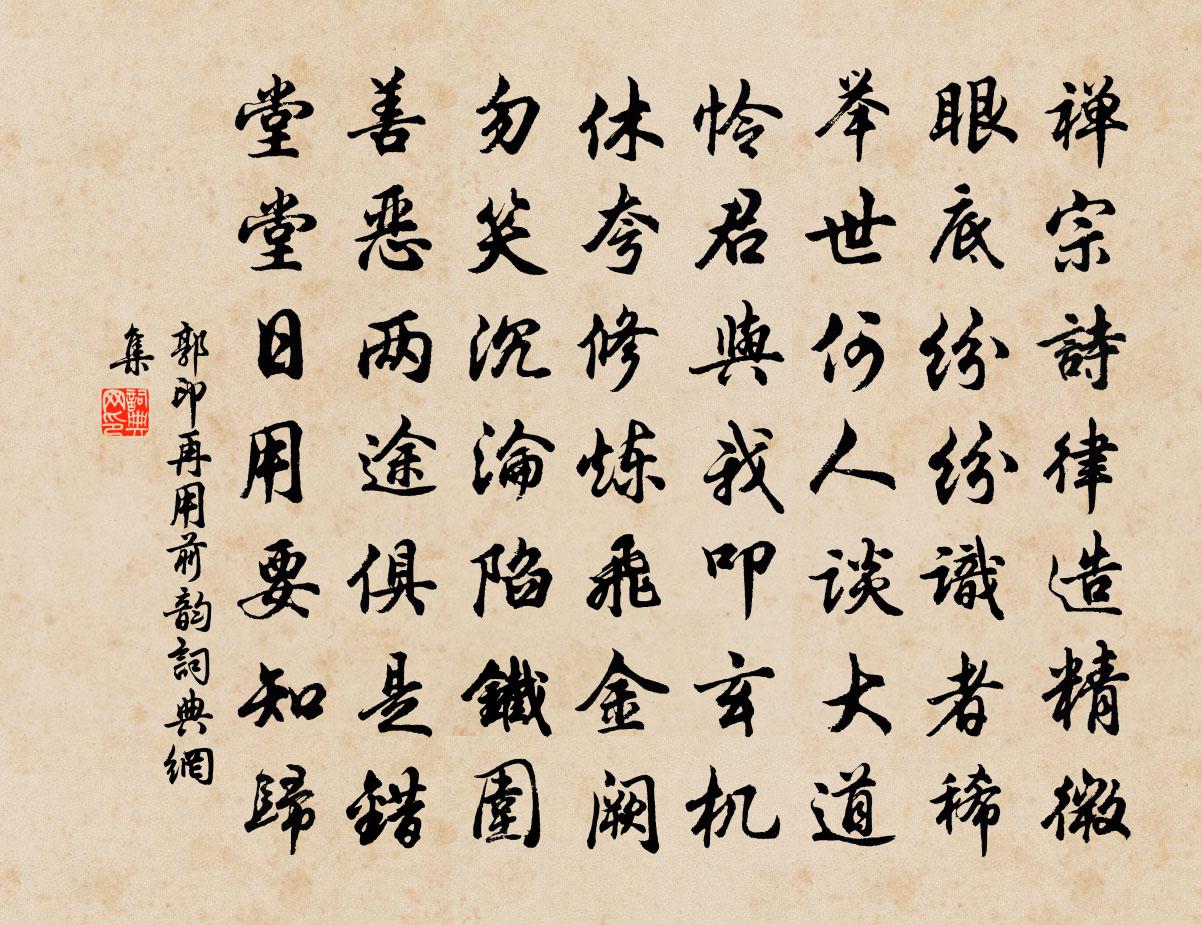 禅宗詩律造精微
眼底紛紛識者稀
举世何人谈大道
怜君與我叩玄机
休夸修炼飛金阙
勿笑沉淪陷鐵圍
善惡两途俱是錯
堂堂日用要知歸
郭印再用前韵詞典網
集
詞典
网印